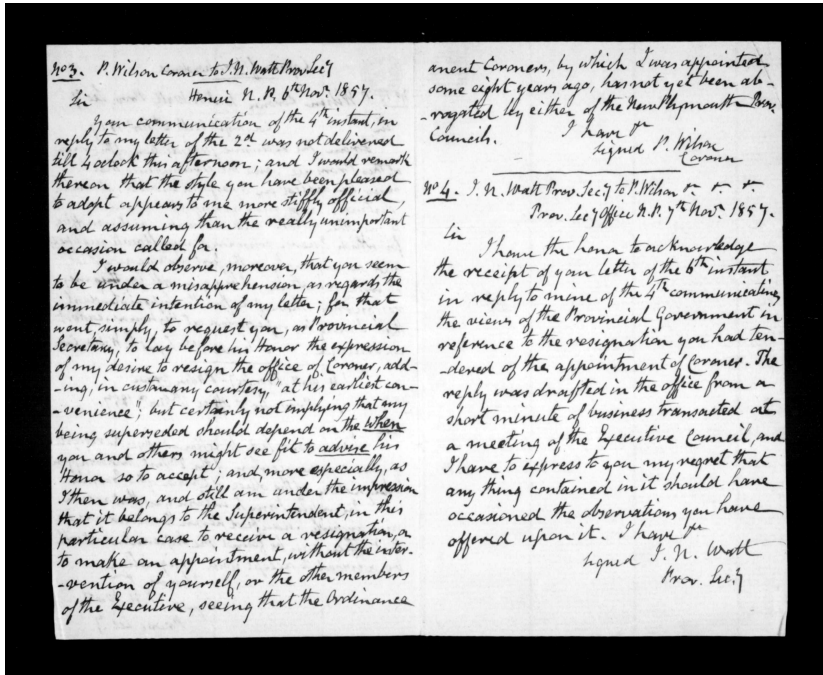 No 3. P. Wilson Coroner to I. N. Watt Prov. Secy
Henui N.P. 6th Novr. 1857.
Sir
Your communication of the 4th instant, in
reply to my letter of the 2d was not delivered
till 4 oclock this afternoon; and I would remark
thereon that the style you have been pleased
to adopt appears to me more stiffly official,
and assuming than the really unimportant
occasion called for.
I would observe, moreover, that you seem
to be under a misapprehension, as regards the
immediate intention of my letter; for that
went, simply, to request you, as Provincial
Secretary, to lay before his Honor the expression
of my desire to resign the office of Coroner, add-
-ing, in customary courtesy, "at his earliest con-
-venience"; but certainly not implying that my
being superseded should depend on the when
you and others might see fit to advise his
Honor so to accept; and, more especially, as
I then was, and still am under the impression
that it belongs to the Superintendent, in this
particular case to receive a resignation, or
to make an appointment, without the inter-
-vention of yourself, or the other members
of the Executive, seeing that the Ordinance
anent Coroners, by which I was appointed
some eight years ago, has not yet been ab-
-rogated by either of the New Plymouth Prov.
Councils.
I have &c
signed P. Wilson
Coroner
No 4. I. N. Watt Prov. Secy to P. Wilson &c. &c. &c.
Prov. Secy Office N.P. 7th Novr. 1857.
Sir
I have the honor to acknowledge
the receipt of your letter of the 6th instant
in reply to mine of the 4th communicating
the views of the Provincial Government in
reference to the resignation you had ten-
-dered of the appointment of Coroner. The
reply was drafted in the office from a
short minute of business transacted at
a meeting of the Executive Council, and
I have to express to you my regret that
any thing contained in it should have
occasioned the observations you have
offered upon it. I have &c
signed I. N. Watt
Prov. Secy